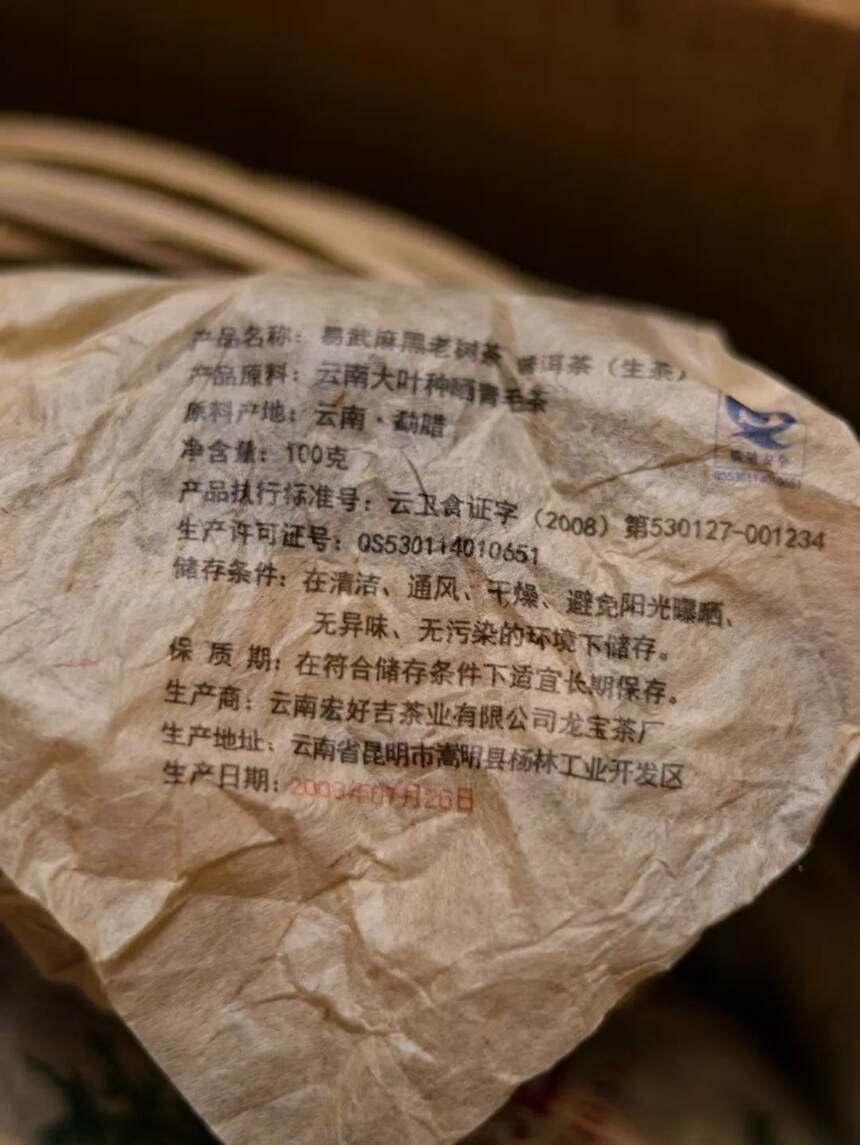 产品名称：易武麻黑老树茶 普洱茶（生茶）
产品原料：云南大叶种晒青毛茶
原料产地：云南·勐腊
净含量：100克
产品执行标准号：云卫食证字（2008）第530127-001234
生产许可证号：QS530114010651
储存条件：在清洁、通风、干燥、避免阳光曝晒、
无异味、无污染的环境下储存。
保 质 期：在符合储存条件下适宜长期保存。
生产商：云南宏好吉茶业有限公司龙宝茶厂
生产地址：云南省昆明市嵩明县杨林工业开发区
生产日期：
质量安全
QS530114010651